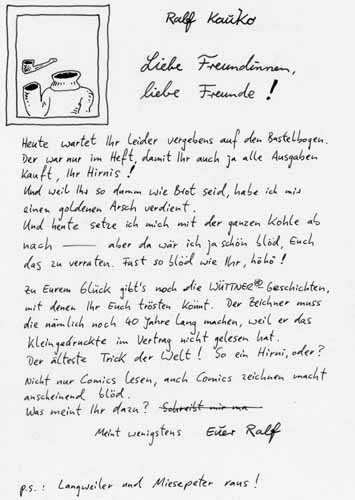 Ralf Kauko
Liebe Freundinnen,
liebe Freunde!
Heute wartet Ihr leider vergebens auf den Bastelbogen.
Der war nur im Heft, damit Ihr auch ja alle Ausgaben
kauft, Ihr Hirnis!
Und weil Ihr so dumm wie Brot seid, habe ich mir
einen goldenen Arsch verdient.
Und heute setze ich mich mit der ganzen Kohle ab
nach —— aber da wär ich ja schön blöd, Euch
das zu verraten. Fast so blöd wie Ihr, höhö!
Zu Eurem Glück gibt's noch die WÜTTNER@ Geschichten,
mit denen Ihr Euch trösten könnt. Der Zeichner muss
die nämlich noch 40 Jahre lang machen, weil er das
Kleingedruckte im Vertrag nicht gelesen hat.
Der älteste Trick der Welt! So ein Hirni, oder?
Nicht nur Comics lesen, auch Comics zeichnen macht
anscheinend blöd.
Was meint Ihr dazu? Schreibt mir ma
Meint wenigstens Euer Ralf
p.s.: Langweiler und Miesepeter raus!